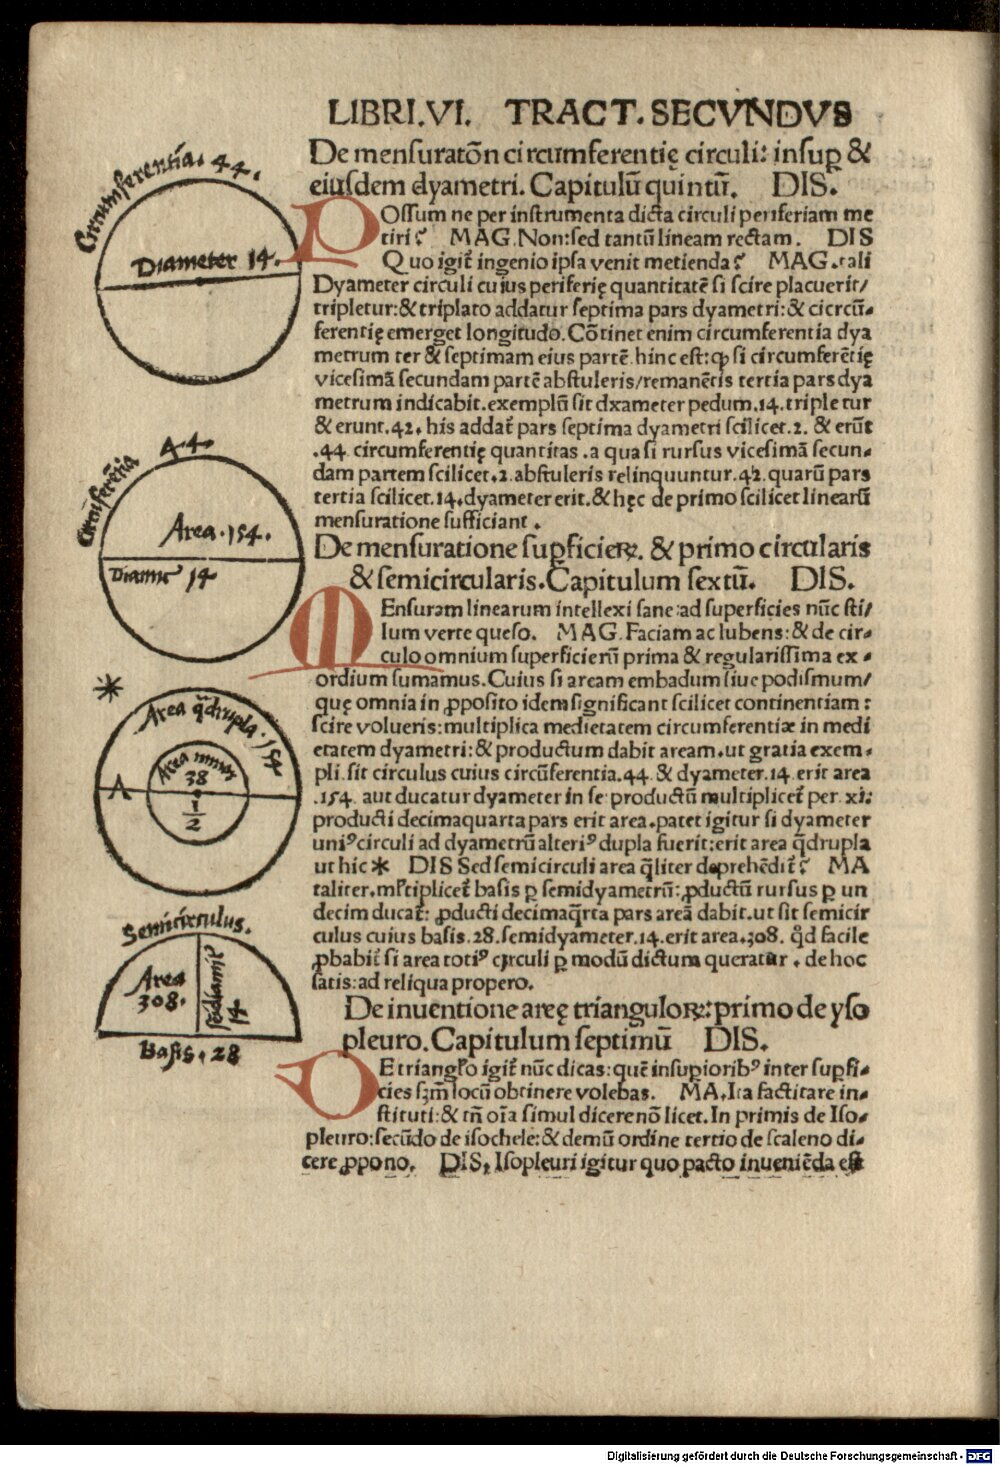 LIBRI.VI. TRACT. SECVNDVS
De mensuratõn circumferentię circuli: insuꝑ &
eiusdem dyametri. Capitulũ quintũ. DIS.
POssum ne per instrumenta dicta circuli periferiam me
tiri? MAG. Non: sed tantũ lineam rectam. DIS
Quo igit̃ ingenio ipsa venit metienda? MAG. tali
Dyameter circuli cuius periferię quantitatẽ si scire placuerit/
tripletur: & triplato addatur septima pars dyametri: & cicrcũ-
ferentię emerget longitudo. Cõtinet enim circumferentia dya
metrum ter & septimam eius partẽ. hinc est: ꝙ si circumferẽtię
vicesimã secundam partẽ abstuleris/remanẽtis tertia pars dya
metrum indicabit. exemplũ sit dxameter pedum .14. tripletur
& erunt .42. his addat̃ pars septima dyametri scilicet .2. & erũt
.44. circumferentię quantitas . a qua si rursus vicesimã secun-
dam partem scilicet .2. abstuleris relinquuntur .42. quarũ pars
tertia scilicet .14. dyameter erit. & hęc de primo scilicet linearũ
mensuratione sufficiant .
De mensuratione suꝑficieꝝ. & primo circularis
& semicircularis. Capitulum sextũ. DIS.
MEnsuram linearum intellexi sane: ad superficies nũc sti/
lum verte queso. MAG. Faciam ac lubens: & de cir-
culo omnium superficierũ prima & regularissima ex-
ordium sumamus. Cuius si aream embadum siue podismum/
quę omnia in ꝓposito idem significant scilicet continentiam:
scire volueris: multiplica medietatem circumferentiæ in medi
etatem dyametri: & productum dabit aream. ut gratia exem-
pli. sit circulus cuius circũferentia .44. & dyameter .14. erit area
.154. aut ducatur dyameter in se productũ multiplicet̃ per .xi:
producti decimaquarta pars erit area. patet igitur si dyameter
uniꝰ circuli ad dyametrũ alteriꝰ dupla fuerit: erit area q̃drupla
ut hic * DIS Sed semicirculi area q̃liter deprehẽdit̃? MA
taliter. ml̃tiplicet̃ basis ꝑ semidyametrũ: ꝓductũ rursus ꝑ un
decim ducat̃: ꝓducti decimaq̃rta pars areã dabit. ut sit semicir
culus cuius basis .28. semidyameter .14. erit area .308. q̃d facile
ꝓbabit̃ si area totiꝰ circuli ꝑ modũ dictum queratur . de hoc
satis: ad reliqua propero.
De inuentione areę trianguloꝝ: primo de yso
pleuro. Capitulum septimũ DIS.
DE triangl̃o igit̃ nũc dicas: quẽ insuꝑioribꝰ inter suꝑfi-
cies sꝫm locũ obtinere volebas. MA. Ita factitare in-
stituti: & tñ oĩa simul dicere nõ licet. In primis de Iso-
pleuro: secũdo de isochele: & demũ ordine tertio de scaleno di-
cere ꝓpono. DIS. Isopleuri igitur quo pacto inueniẽda est
Circumferentia. 44.
Diameter 14.
Circũferẽtia 44.
Area .154.
Diamet̃ 14
*
Area q̃drupla .154
Area minor
38
1
2
A
Semicirculus.
Area
308.
sẽidiamet̃
14
Basis . 28
Digitalisierung gefördert durch die Deutsche Forschungsgemeinschaft - DFG